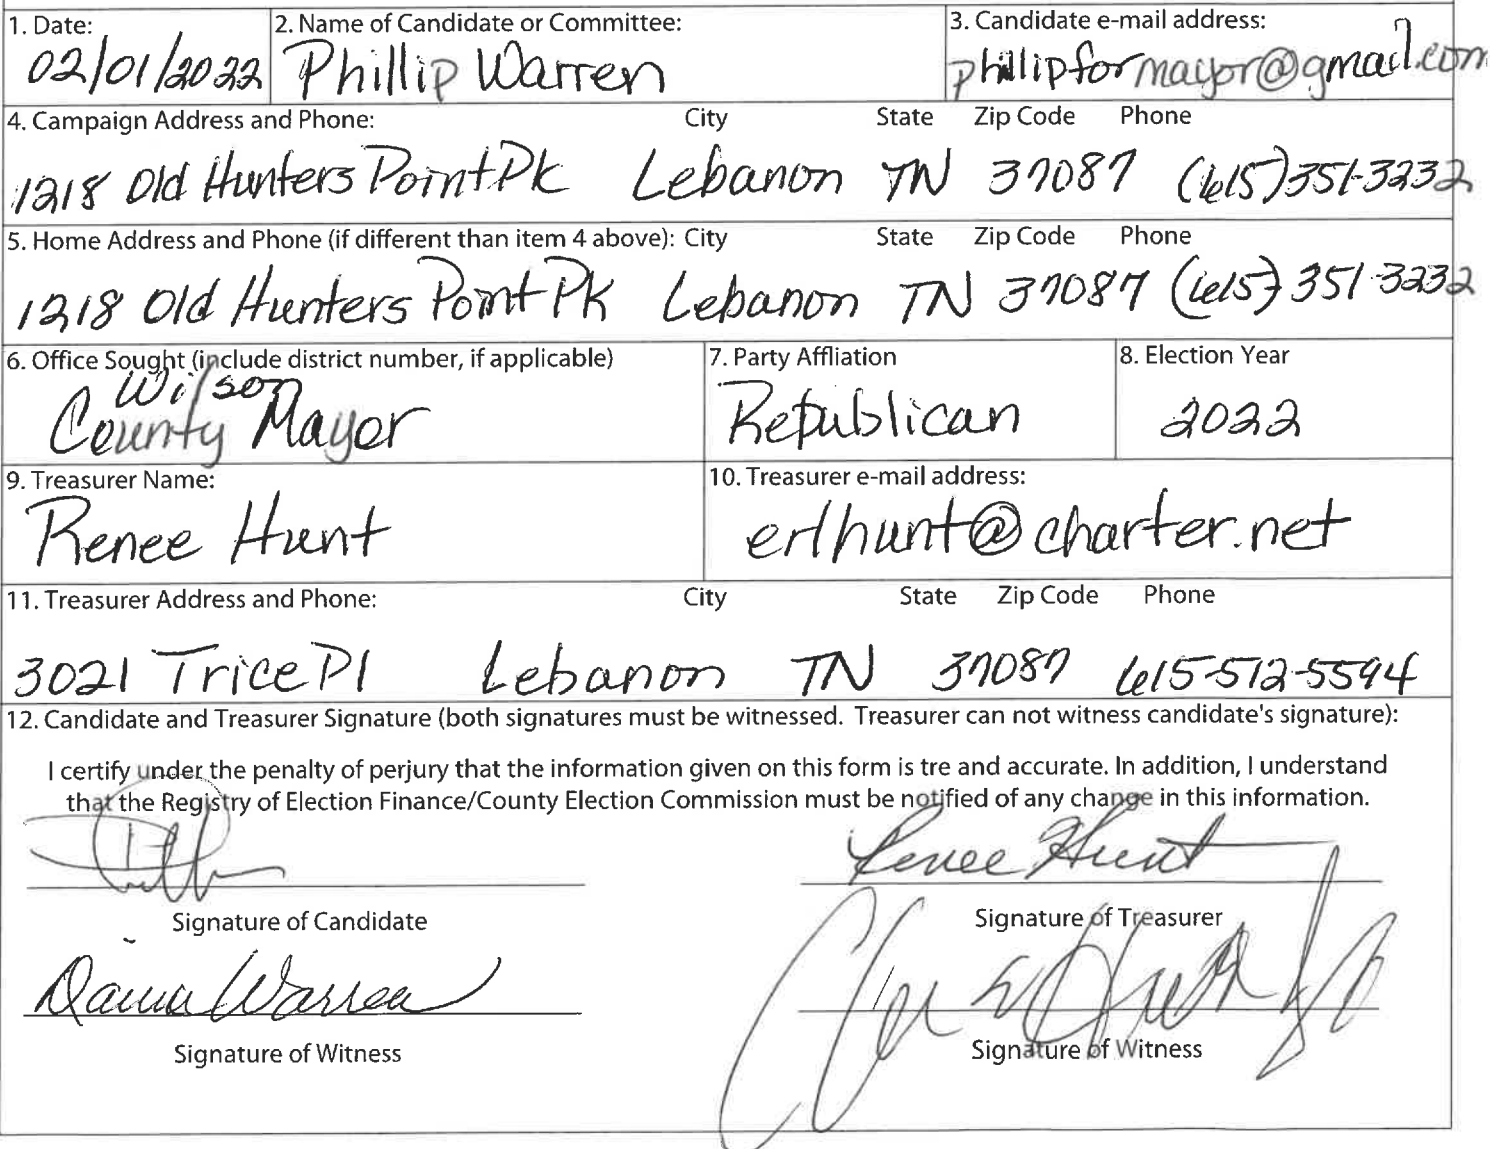 1. Date: 2. Name of Candidate or Committee: 3. Candidate e-mail address:
02/01/2022 Phillip Warren phillipformayor@gmail.com
4. Campaign Address and Phone: City State Zip Code Phone
1218 Old Hunters Point Pk Lebanon TN 37087 (615)351-3232
5. Home Address and Phone (if different than item 4 above): City State Zip Code Phone
1218 Old Hunters Point Pk Lebanon TN 37087 (615) 351-3232
6. Office Sought (include district number, if applicable) 7. Party Affliation 8. Election Year
Wilson
County Mayor Republican 2022
9. Treasurer Name: 10. Treasurer e-mail address:
Renee Hunt erlhunt@charter.net
11. Treasurer Address and Phone: City State Zip Code Phone
3021 Trice Pl Lebanon TN 37087 615-512-5594
12. Candidate and Treasurer Signature (both signatures must be witnessed. Treasurer can not witness candidate's signature):
I certify under the penalty of perjury that the information given on this form is tre and accurate. In addition, I understand
that the Registry of Election Finance/County Election Commission must be notified of any change in this information.
Renee Hunt
Signature of Candidate Signature of Treasurer
Warren
Signature of Witness Signature of Witness